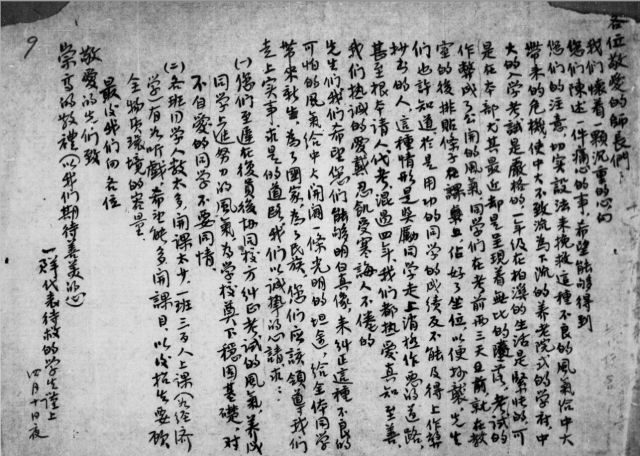 各位敬愛的師長們：
我們懷着一顆沉重的心向
您們陳述一件痛心的事，希望能够得到
您們的注意，切实設法來挽救這種不良的風氣給中大
帶來的危機，使中大不致流為下流的养老院式的学府。中
大的入学考試是嚴格的，一年級在柏溪的生活是緊張的，可
是在本部尤其最近却是呈現着無比的，考試的
作弊成了公開的風氣，同学們在考前兩三天，就在教
室的後排貼條子，在課桌上佔好了坐位，以便抄襲，先生
們也許知道，於是用功的同学的成績反不能及得上作弊
抄書的人，這種情形是奬勵同学走上消極作惡的道路，
甚至根本請人代考，混過四年，我們都热爱真知至善，
我們热誠的爱戴忍飢受寒誨人不倦的
先生們，我們希望您們能够明白真像，来糾正這種不良的
可怕的風氣，給中大開闢一條光明的坦道，給全体同学
帶来新生。為了國家，為了民族，您們应該領導我們
走上实事求是的道路，我們以誠摯的心請求：
(一)您們至底在後協同校方糾正考試的風氣，养成
同学上進努力的風氣，為学校奠下穩固基礎。对
不自爱的同学不要同情。
(二)各班同学人数太多，開課太少，一班三百人上課(如經济
学)有如听戲，希望能多開課目，以及招生要顧
全物质環境的容量。
最後我們向各位
敬爱的先生們致
崇高的敬禮(以我們期待善美的心)
一群代表待救的学生謹上
四月十日夜
9